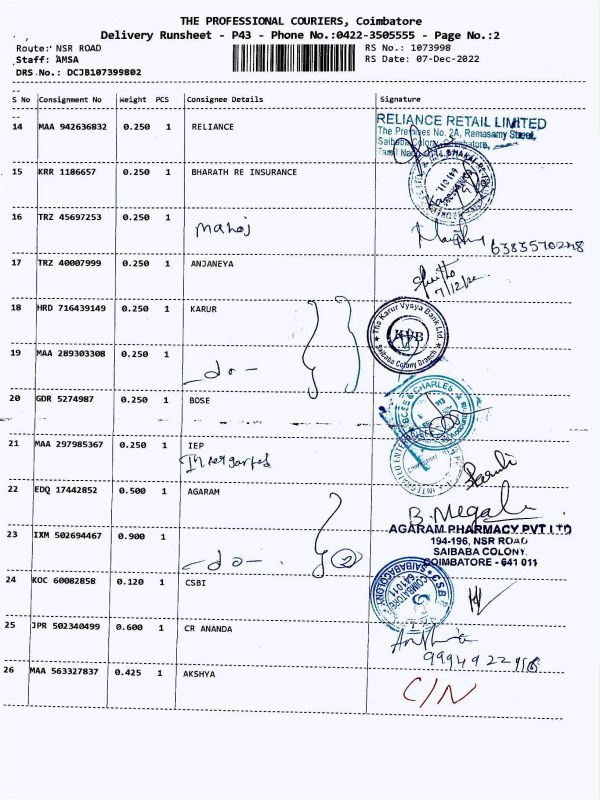 THE PROFESSIONAL COURIERS, Coimbatore
Delivery Runsheet - P43 - Phone No.:0422-3505555 - Page No.:2
Route: NSR ROAD RS No.: 1073998
Staff: AMSA RS Date: 07-Dec-2022
DRS No.: DCJB107399802
S No Consignment No Weight PCS Consignee Details Signature
14 MAA 942636832 0.250 1 RELIANCE
RELIANCE RETAIL LIMITED
The Premises No. 2A, Ramasamy Street,
Saibaba Colony, Coimbatore,
Tamil
15 KRR 1186657 0.250 1 BHARATH RE INSURANCE
16 TRZ 45697253 0.250 1
manoj
17 TRZ 40007999 0.250 1 ANJANEYA
7/12/22
18 HRD 716439149 0.250 1 KARUR
The Karur Vysya Bank Ltd.
KVB
Saibaba Colony Branch
19 MAA 289303308 0.250 1
- do -
20 GDR 5274987 0.250 1 BOSE
& CHARLES
21 MAA 297985367 0.250 1 IEP
22 EDQ 17442852 0.500 1 AGARAM
B. Megala
AGARAM PHARMACY PVT LTD
194-196, NSR ROAD
SAIBABA COLONY.
COIMBATORE - 641 011
23 IXM 502694467 0.900 1
- do - 2
24 KOC 60082858 0.120 1 CSBI
C.S.B
SAIBABACOLONY
COIMBATORE
641 011
25 JPR 502340499 0.600 1 CR ANANDA
26 MAA 563327837 0.425 1 AKSHYA
C/N